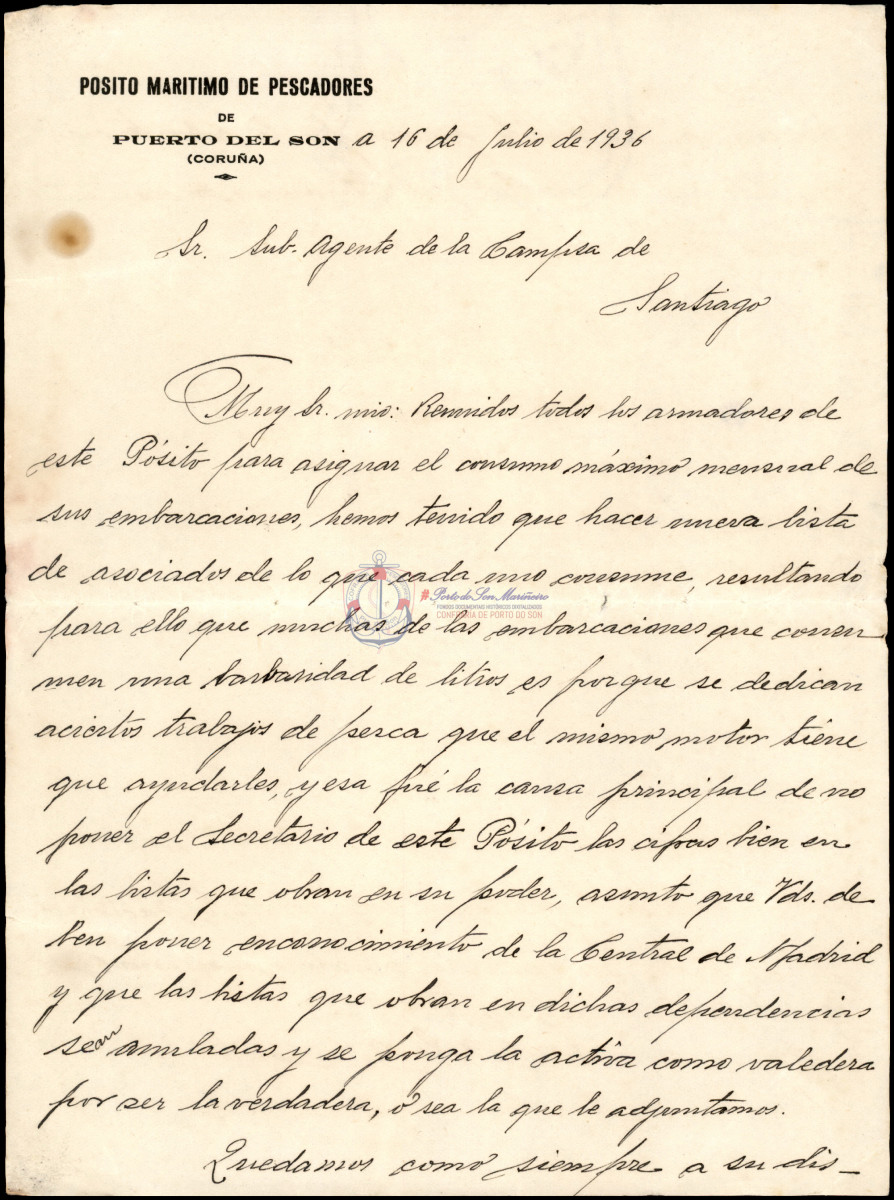 POSITO MARITIMO DE PESCADORES
DE
PUERTO DEL SON a 16 de Julio de 1936
(CORUÑA)
Sr. Sub-Agente de la Campsa de
Santiago
Muy Sr. mio: Reunidos todos los armadores de
este Pósito para asignar el consumo máximo mensual de
sus embarcaciones, hemos tenido que hacer nueva lista
de asociados de lo que cada uno consume, resultando
#Porto do Son Mariñeiro
FONDOS DOCUMENTAIS HISTÓRICOS DIGITALIZADOS
CONFRARÍA DE PORTO DO SON
para ello que muchas de las embarcaciones que consu
men una barbaridad de litros es porque se dedican
aciertos trabajos de pesca que el mismo motor tiene
que ayudarles, y esa fué la causa principal de no
poner el Secretario de este Pósito las cifras bien en
las listas que obran en su poder, asunto que Vds. de
ben poner enconocimiento de la Central de Madrid
y que las listas que obran en dichas dependencias
sean anuladas y se ponga la activa como valedera
por ser la verdadera, ó sea la que le adjuntamos.
Quedamos como siempre a su dis-